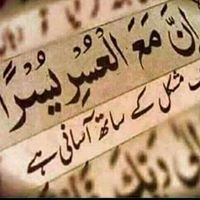 إِنَّ مَعَ الْعُسْرِ يُسْرًا
مشکل کے ساتھ آسانی ہے
رَبِّكَ